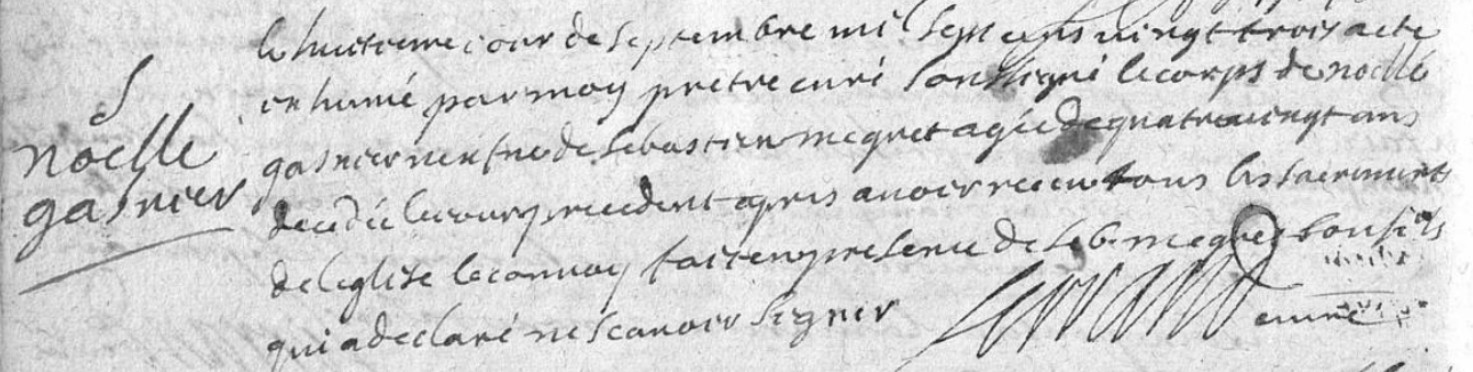 S
noelle
gasnier
le huitieme iour de septembre mil sept cens vingt trois a ete
inhumé par moy pretre curé soussigné le corps de noelle
gasnier veufve de sebastien megret agée de quatre vingt ans
decedée le iour precedent apres avoir receu tous les sacrements
de leglise le convoy fait en presence de seb. megret son fils
qui a declaré ne scavoir signer